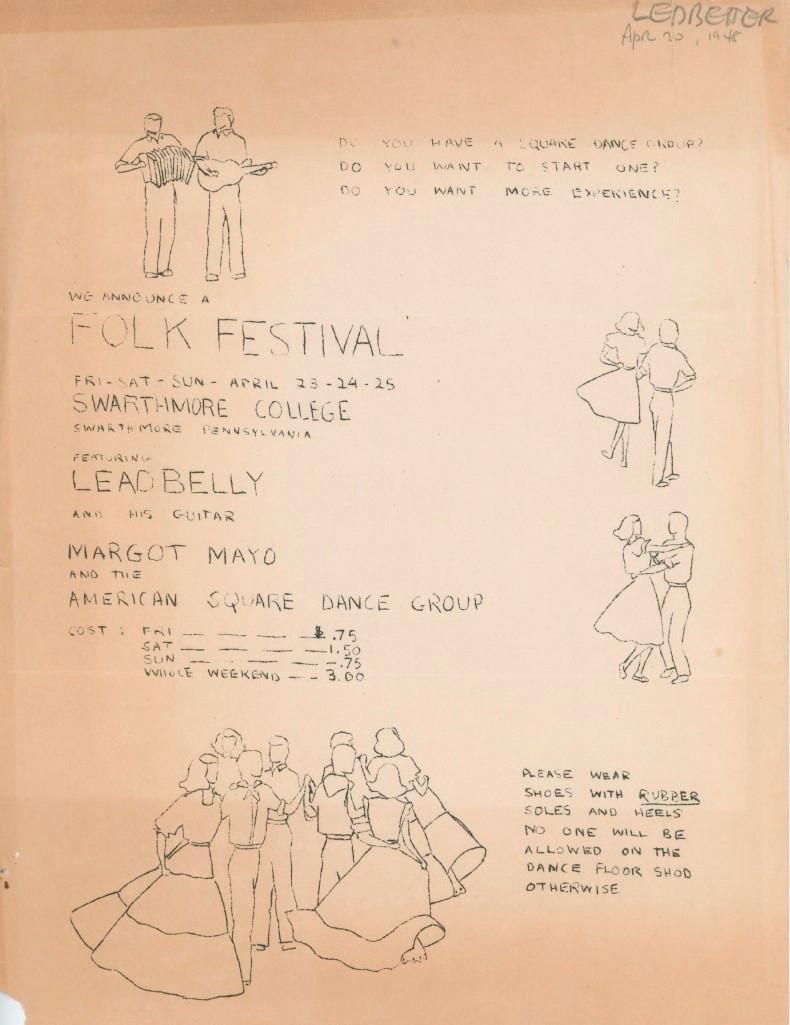 LEDBETTER
Apr 20, 1948
DO YOU HAVE A SQUARE DANCE GROUP?
DO YOU WANT TO START ONE?
DO YOU WANT MORE EXPERIENCE?
WE ANNOUNCE A
FOLK FESTIVAL
FRI-SAT-SUN- APRIL 23-24-25
SWARTHMORE COLLEGE
SWARTHMORE PENNSYLVANIA
FEATURING
LEADBELLY
AND HIS GUITAR
MARGOT MAYO
AND THE
AMERICAN SQUARE DANCE GROUP
COST: FRI — — — — $.75
SAT — — — — 1.50
SUN — — — — .75
WHOLE WEEKEND — — 3.00
PLEASE WEAR
SHOES WITH RUBBER
SOLES AND HEELS
NO ONE WILL BE
ALLOWED ON THE
DANCE FLOOR SHOD
OTHERWISE